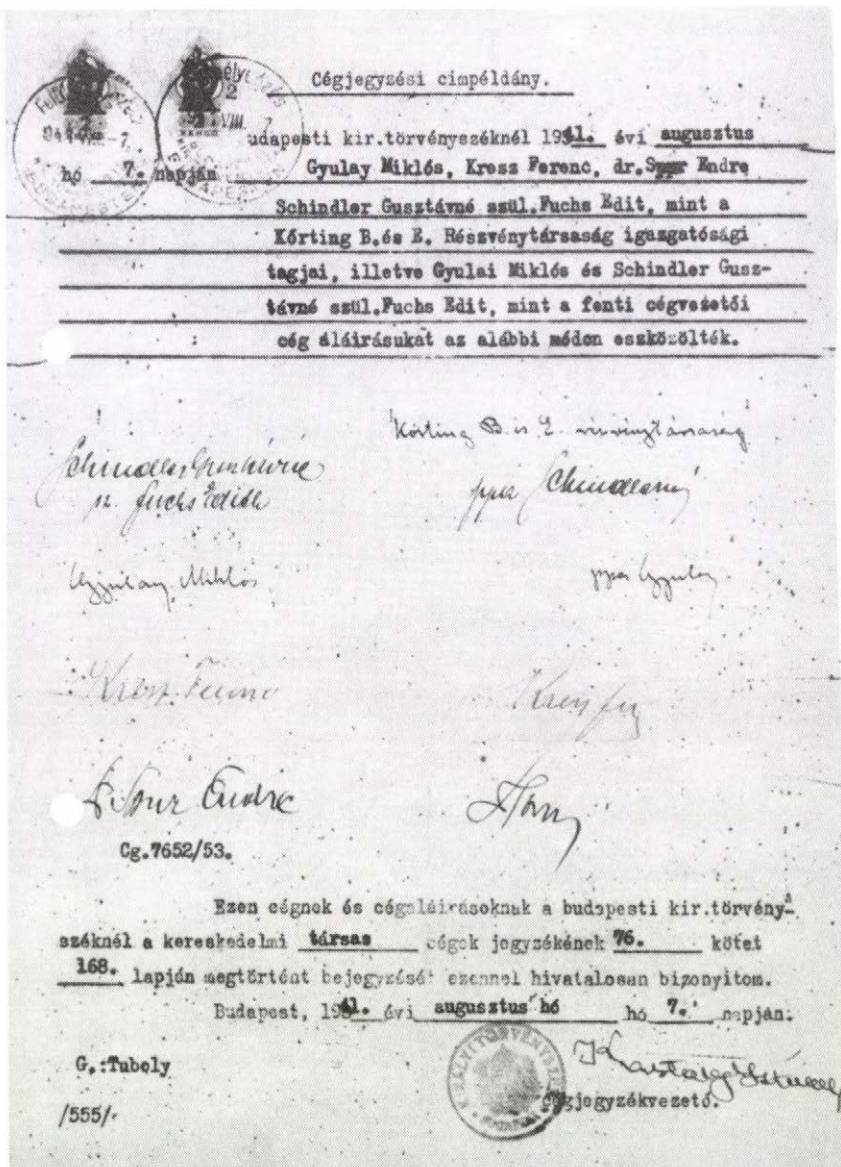 Cégjegyzési cimpéldány.
budapesti kir.törvényszéknél 1941. évi augusztus
hó 7. napján Gyulay Miklós, Kresz Ferenc, dr. Endre
Schindler Gusztávné szül.Fuchs Edit, mint a
Körting B.és E. Részvénytársaság igazgatósági
tagjai, illetve Gyulai Miklós és Schindler Gusz-
távné szül.Fuchs Edit, mint a fenti cégvezetői
cég áláirásukat az alábbi módon eszközölték.
Körting B. és E. részvénytársaság
Schindler Gusztávné ppa Schindlerné
sz. Fuchs Edith
Gyulay Miklós ppa Gyulay
Kresz Ferenc
Endre
Cg.7652/53.
Ezen cégnek és cégaláirásoknak a budapesti kir.törvény-
széknél a kereskedelmi társas cégek jegyzékének 76. kötet
168. lapján megtörtént bejegyzését ezennel hivatalosan bizonyitom.
Budapest, 1941. évi augusztus hó hó 7. napján.
G.:Tubely
cégjegyzékvezető.
/555/.